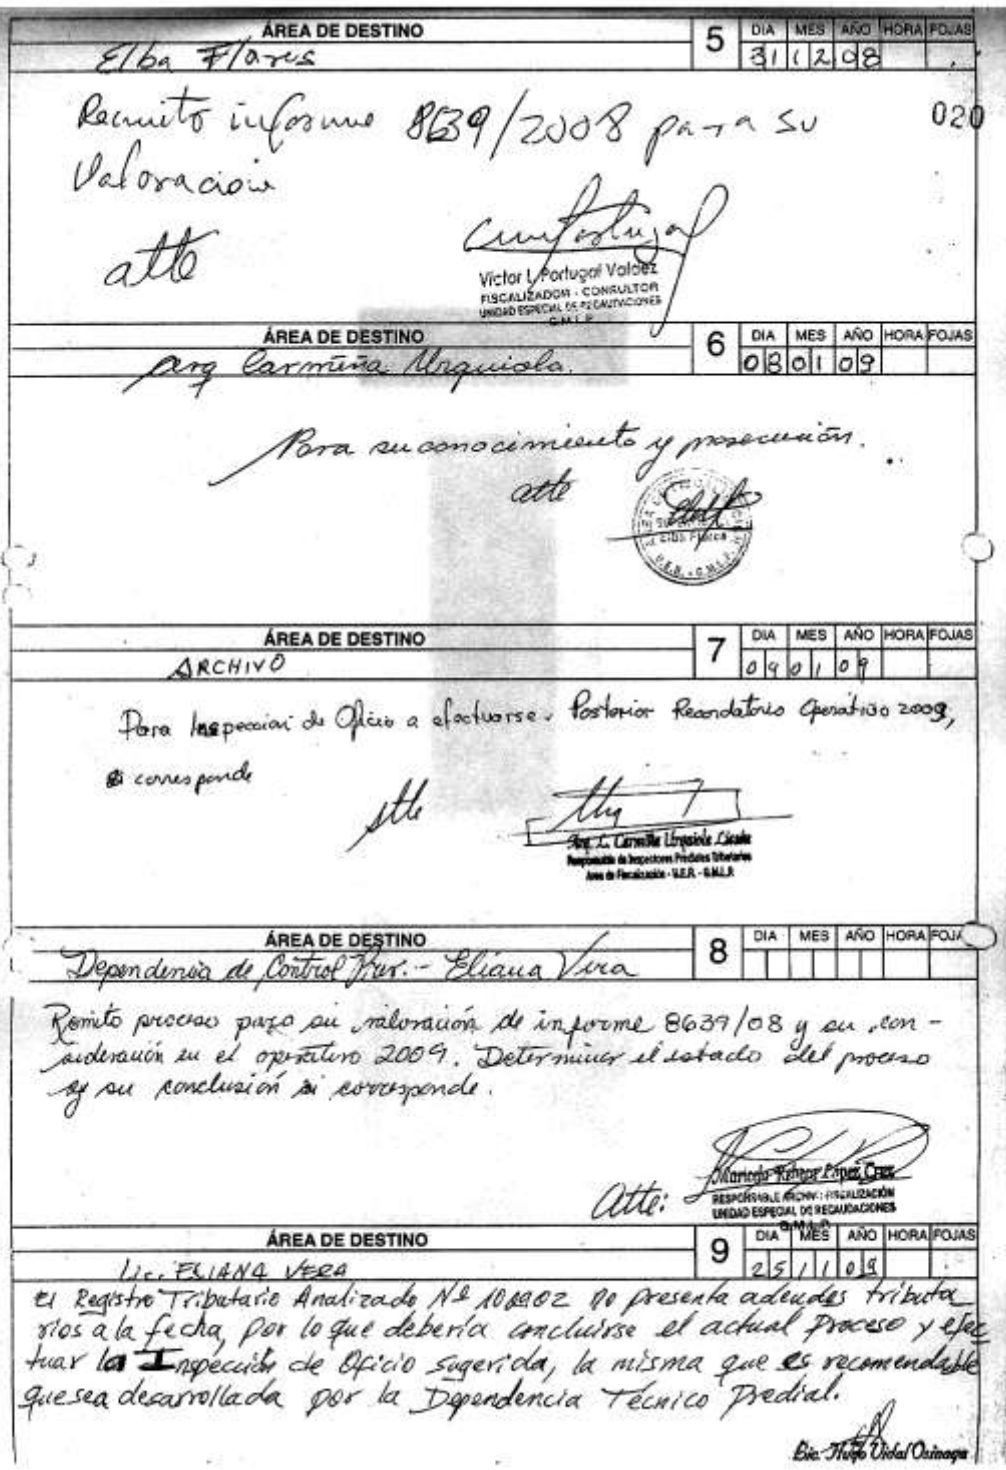 ÁREA DE DESTINO 5 DIA MES AÑO HORA FOJAS
Elba Flores 31 12 08
020
Remito informe 8639/2008 para su
Valoración
atte
Victor L. Portugal Valdez
FISCALIZADOR - CONSULTOR
UNIDAD ESPECIAL DE RECAUDACIONES
G.M.L.P.
ÁREA DE DESTINO 6 DIA MES AÑO HORA FOJAS
Arq Carmiña Urquiola. 08 01 09
Para su conocimiento y prosecución.
atte
Elba Flores
U.E.R. - G.M.L.P.
ÁREA DE DESTINO 7 DIA MES AÑO HORA FOJAS
ARCHIVO 09 01 09
Para Inspeccion de Oficio a efectuarse. Posterior Recordatorio Operativo 2009,
si corresponde
atte
Arq. L. Carmiña Urquiola
Responsable de Inspectores Prediales Tributarios
Area de Fiscalización - U.E.R. - G.M.L.P.
ÁREA DE DESTINO 8 DIA MES AÑO HORA FOJAS
Dependencia de Control - Eliana Vera
Remito proceso para su valoración de informe 8639/08 y su con-
sideración en el operativo 2009. Determinar el estado del proceso
y su conclusión si corresponde.
Atte:
López Cruz
RESPONSABLE ARCHIVO FISCALIZACIÓN
UNIDAD ESPECIAL DE RECAUDACIONES
G.M.L.P.
ÁREA DE DESTINO 9 DIA MES AÑO HORA FOJAS
Lic. ELIANA VERA 25 11 09
El Registro Tributario Analizado Nº no presenta adeudos tributa
rios a la fecha, por lo que debería concluirse el actual proceso y efec
tuar la Inspección de Oficio sugerida, la misma que es recomendable
que sea desarrollada por la Dependencia Técnico Predial.
Lic. Hugo Vidal Osinaga